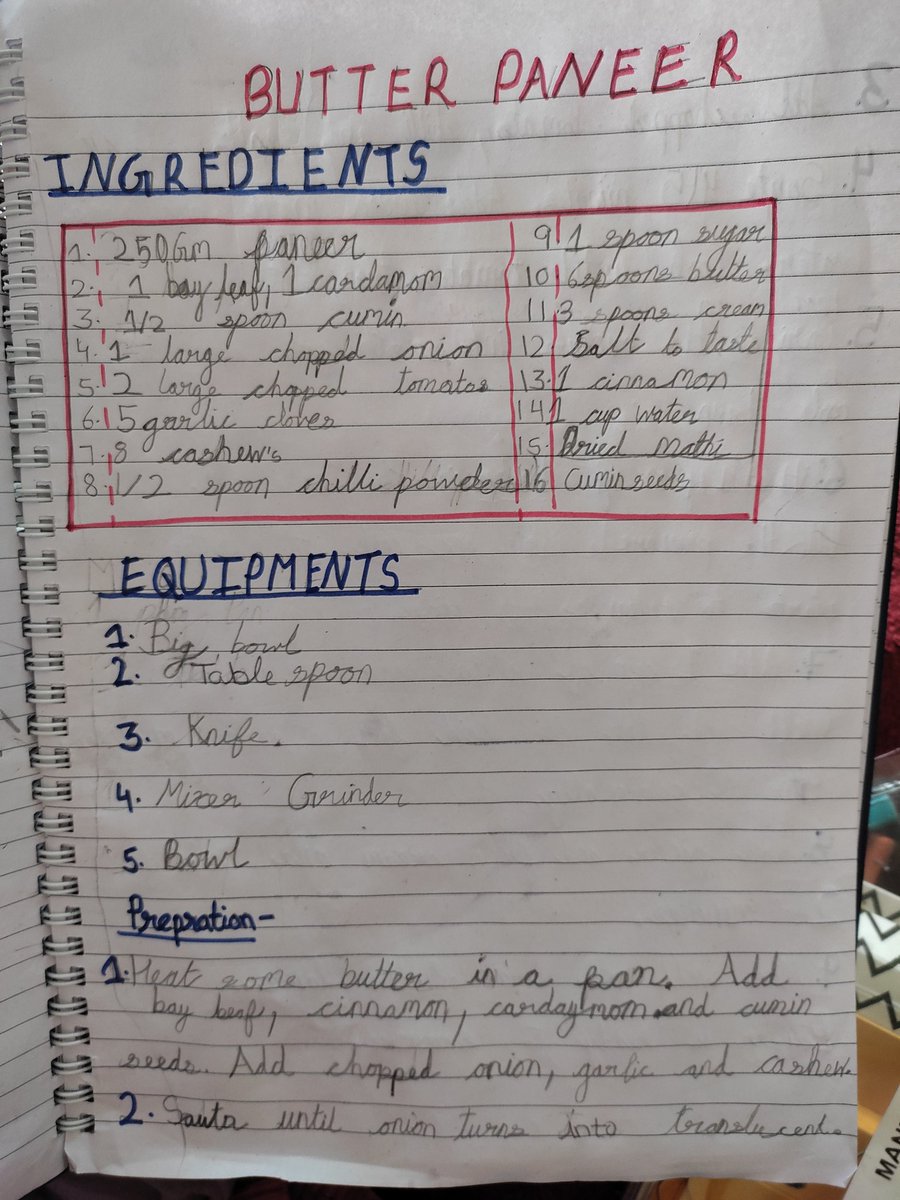 BUTTER PANEER
INGREDIENTS
1. 250Gm paneer
2. 1 bay leaf, 1 cardamom
3. 1/2 spoon cumin
4. 1 large chopped onion
5. 2 large chopped tomatos
6. 5 garlic cloves
7. 8 cashew's
8. 1/2 spoon chilli powder
9 1 spoon sugar
10 6 spoons butter
11 3 spoons cream
12 Salt to taste
13. 1 cinnamon
14 1 cup water
15. Dried Mathi
16 Cumin seeds
EQUIPMENTS
1. Big bowl
2. Table spoon
3. Knife.
4. Mixer Grinder
5. Bowl
Prepration-
1. Heat some butter in a pan. Add
bay beaf, cinnamon, cardaymom and cumin
seeds. Add chopped onion, garlic and cashew.
2. Sauta until onion turns into translucent.
MAN